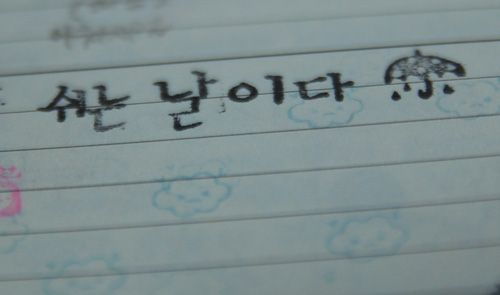 쉬는 날이다